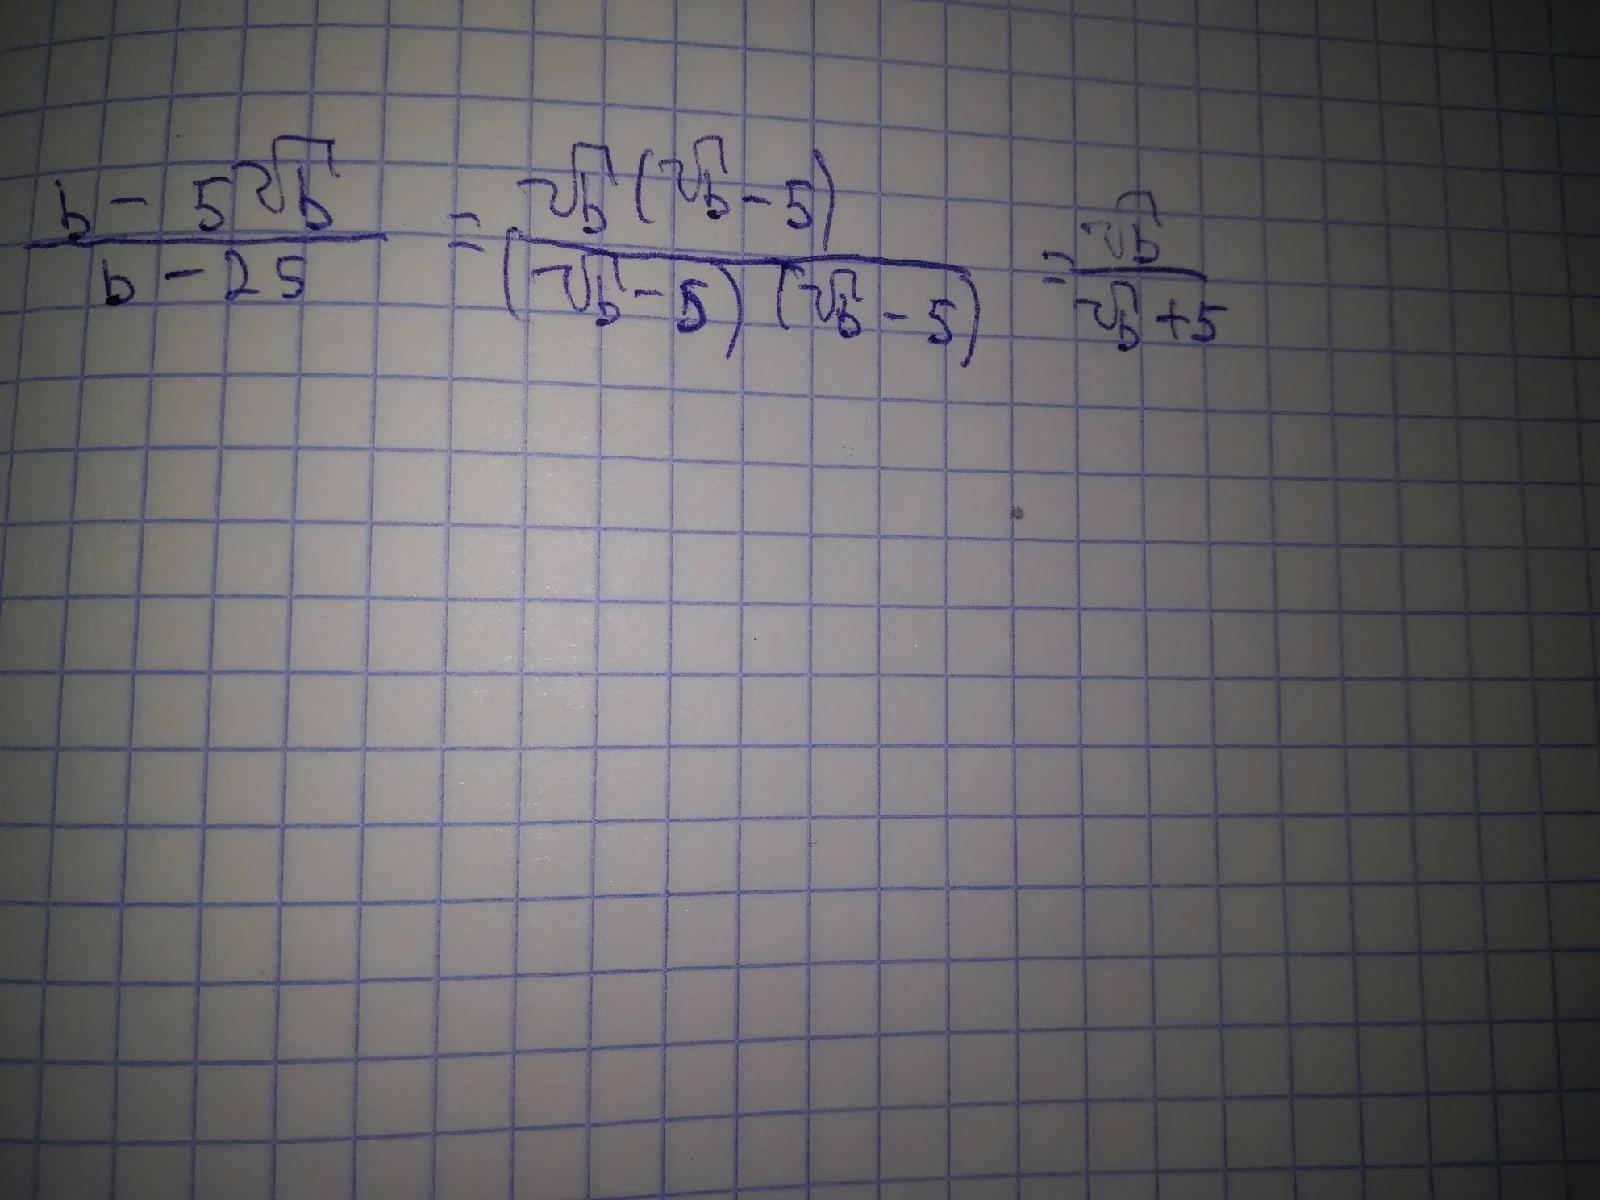 (b - 5√b)/(b - 25) = (√b(√b - 5))/((√b - 5)(√b - 5)) = √b/(√b + 5)